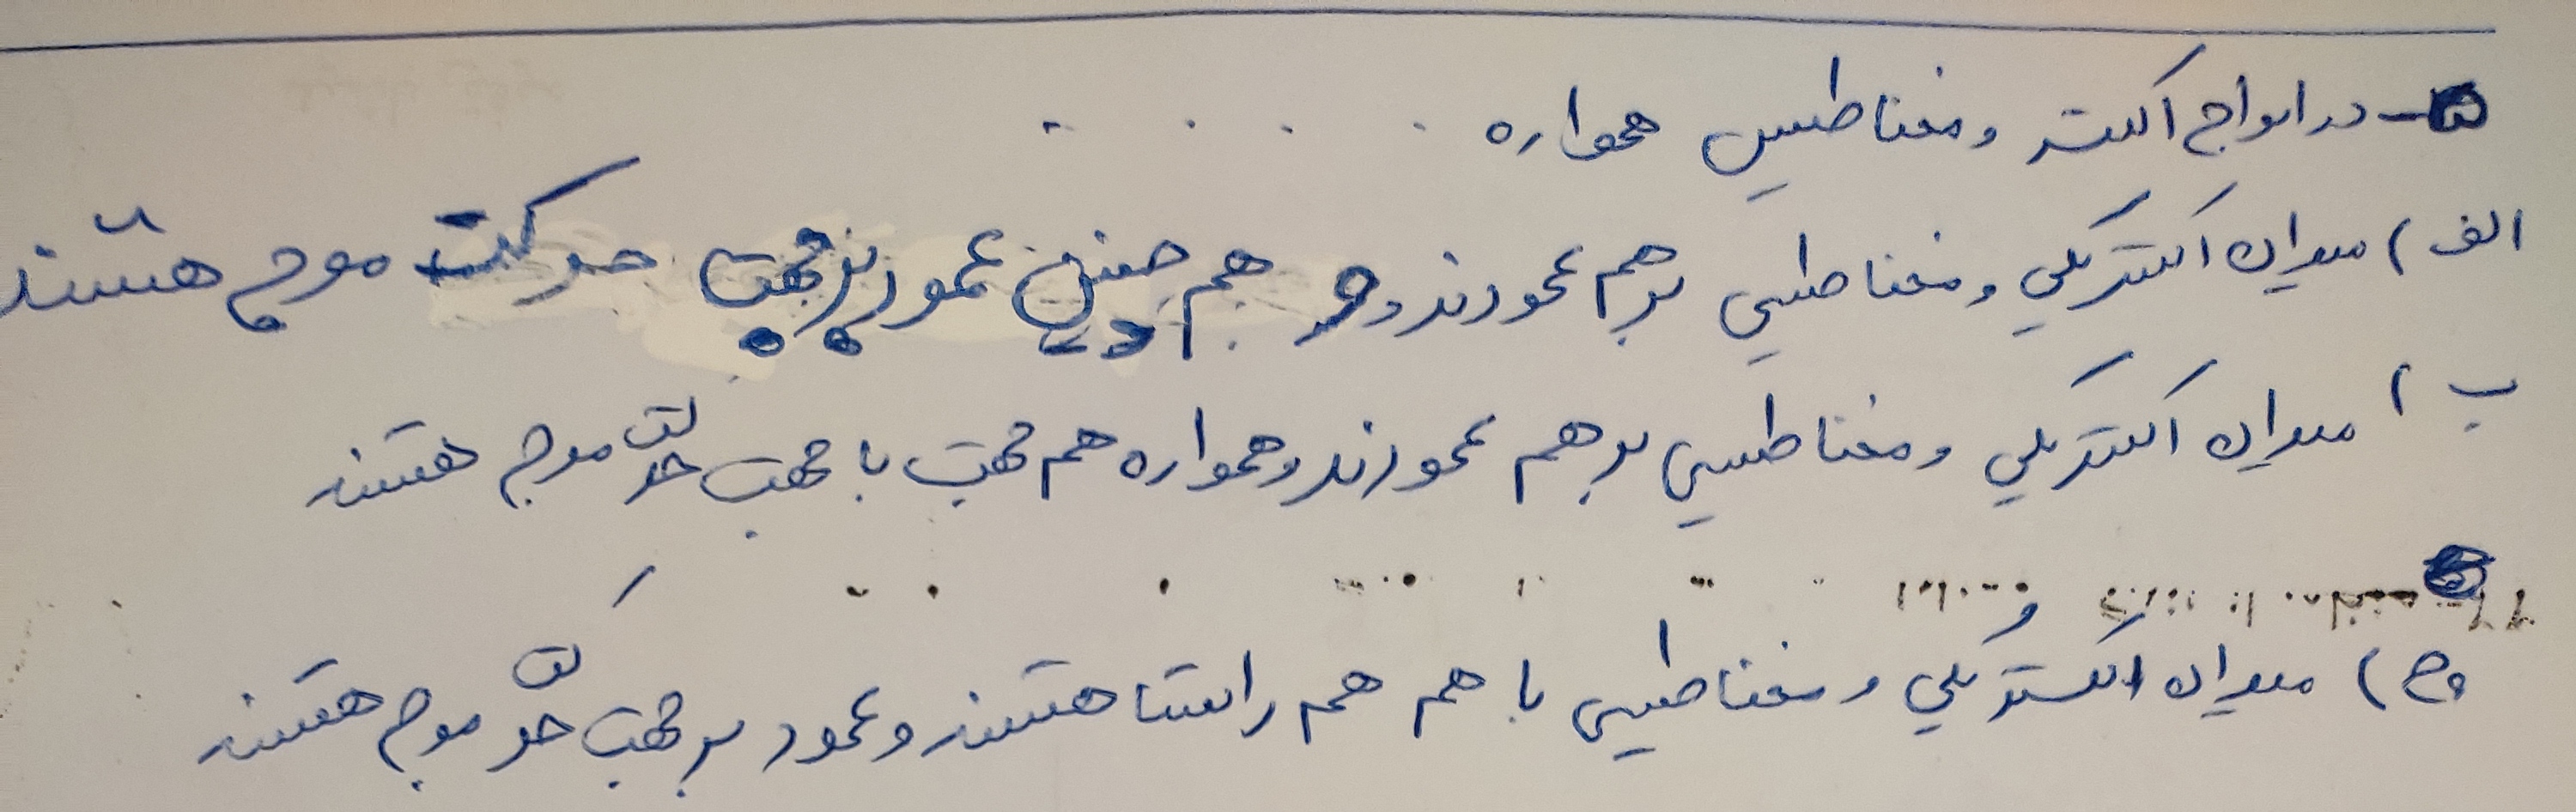 ۵- در امواج الکترومغناطیس همواره . . . .
الف) میدان الکتریکی و مغناطیسی برهم عمودند و هم چنین عمود بر جهت حرکت موج هستند
ب) میدان الکتریکی و مغناطیسی برهم عمودند و همواره هم جهت با جهت حرکت موج هستند
ج) میدان الکتریکی و مغناطیسی با هم هم راستا هستند و عمود بر جهت حرکت موج هستند